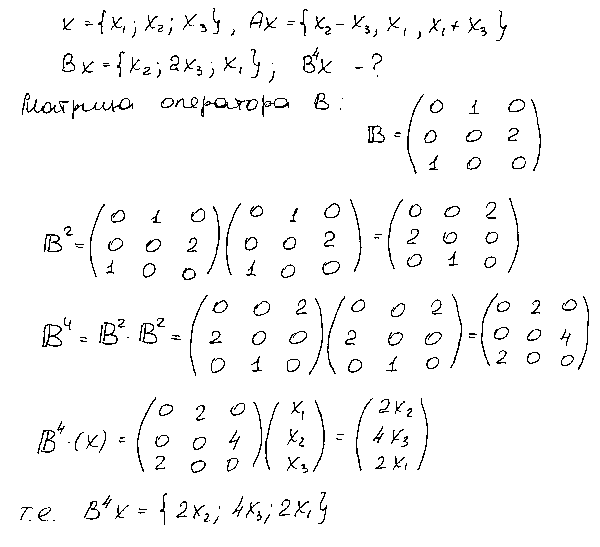 x = {x₁; x₂; x₃}, Ax = {x₂ − x₃, x₁, x₁ + x₃}
Bx = {x₂; 2x₃; x₁}; B⁴x - ?
Матрица оператора B:
𝔹 = ( 0 1 0 )
( 0 0 2 )
( 1 0 0 )
𝔹² = ( 0 1 0 ) ( 0 1 0 ) = ( 0 0 2 )
( 0 0 2 ) ( 0 0 2 ) ( 2 0 0 )
( 1 0 0 ) ( 1 0 0 ) ( 0 1 0 )
𝔹⁴ = 𝔹² · 𝔹² = ( 0 0 2 ) ( 0 0 2 ) = ( 0 2 0 )
( 2 0 0 ) ( 2 0 0 ) ( 0 0 4 )
( 0 1 0 ) ( 0 1 0 ) ( 2 0 0 )
𝔹⁴·(x) = ( 0 2 0 ) ( x₁ ) = ( 2x₂ )
( 0 0 4 ) ( x₂ ) ( 4x₃ )
( 2 0 0 ) ( x₃ ) ( 2x₁ )
т.е. B⁴x = {2x₂; 4x₃; 2x₁}